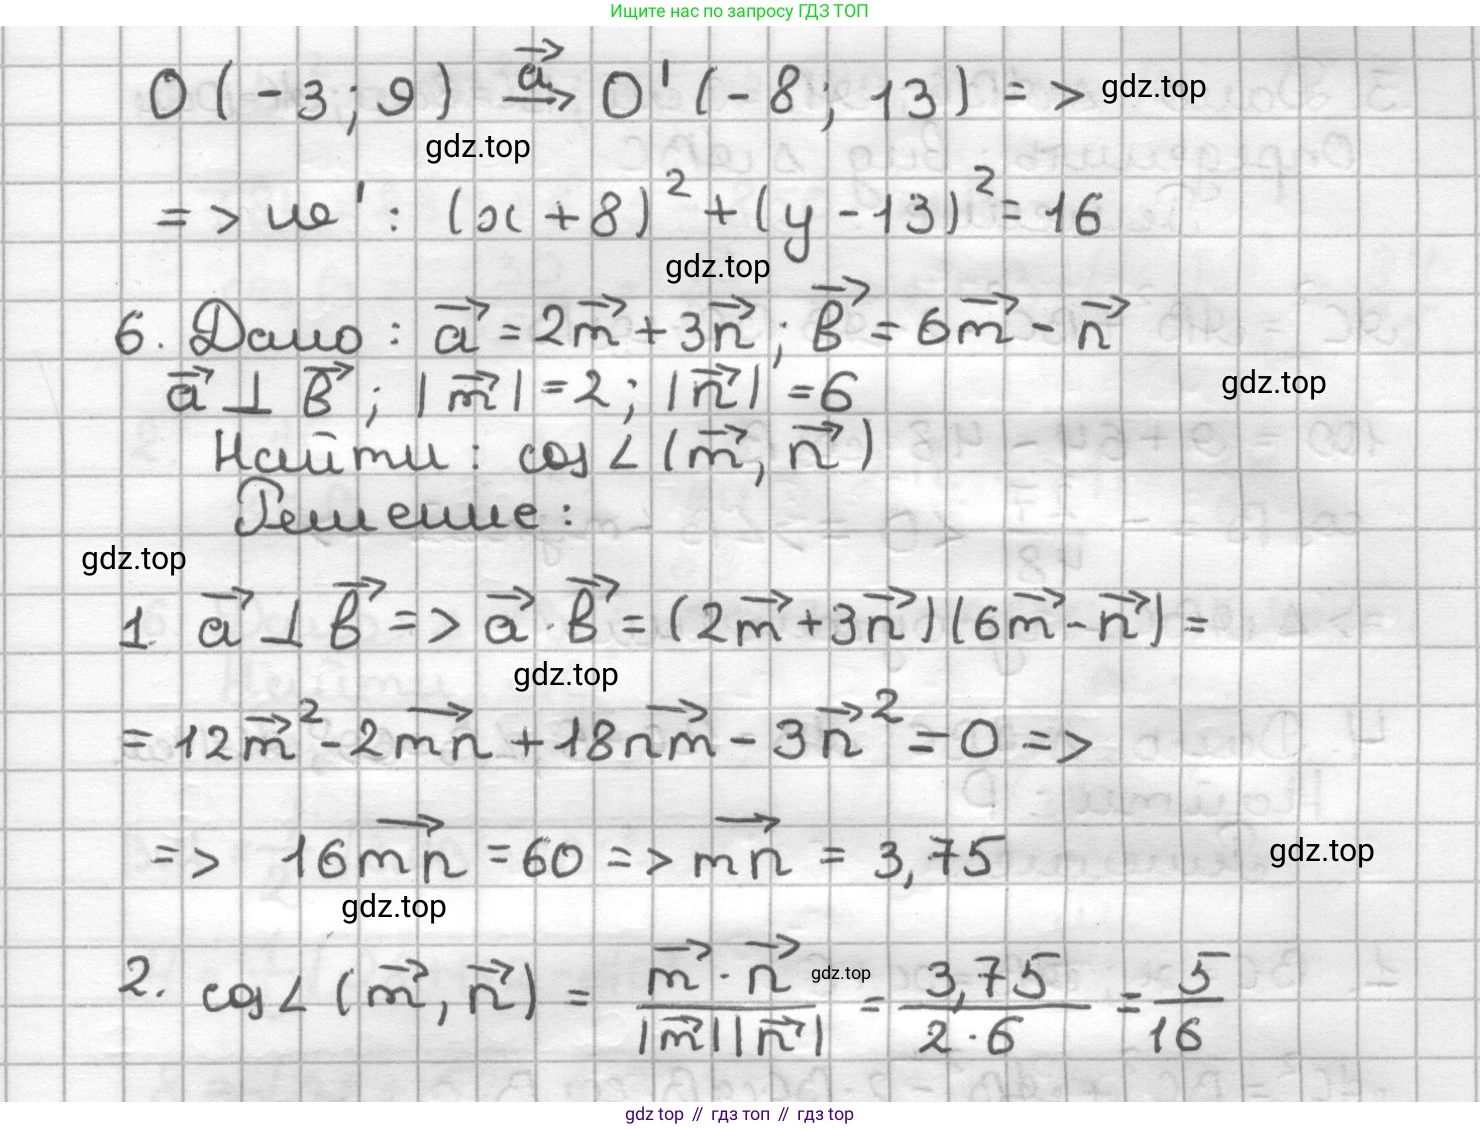 Ищите нас по запросу ГДЗ ТОП
O(-3; 9) →a⃗ O'(-8; 13) => gdz.top
gdz.top
=> ω': (x+8)² + (y-13)² = 16
gdz.top
6. Дано: a⃗ = 2m⃗ + 3n⃗; b⃗ = 6m⃗ - n⃗
a⃗ ⊥ b⃗; |m⃗| = 2; |n⃗| = 6 gdz.top
Найти: cos∠(m⃗, n⃗)
Решение:
gdz.top
1. a⃗ ⊥ b⃗ => a⃗ · b⃗ = (2m⃗ + 3n⃗)(6m⃗ - n⃗) =
gdz.top
= 12m⃗² - 2mn⃗ + 18nm⃗ - 3n⃗² = 0 =>
=> 16mn⃗ = 60 => mn⃗ = 3,75 gdz.top
gdz.top
2. cos∠(m⃗, n⃗) = m⃗ · n⃗ / |m⃗||n⃗| gdz.top = 3,75 / 2·6 = 5/16
gdz top // гдз топ // gdz top